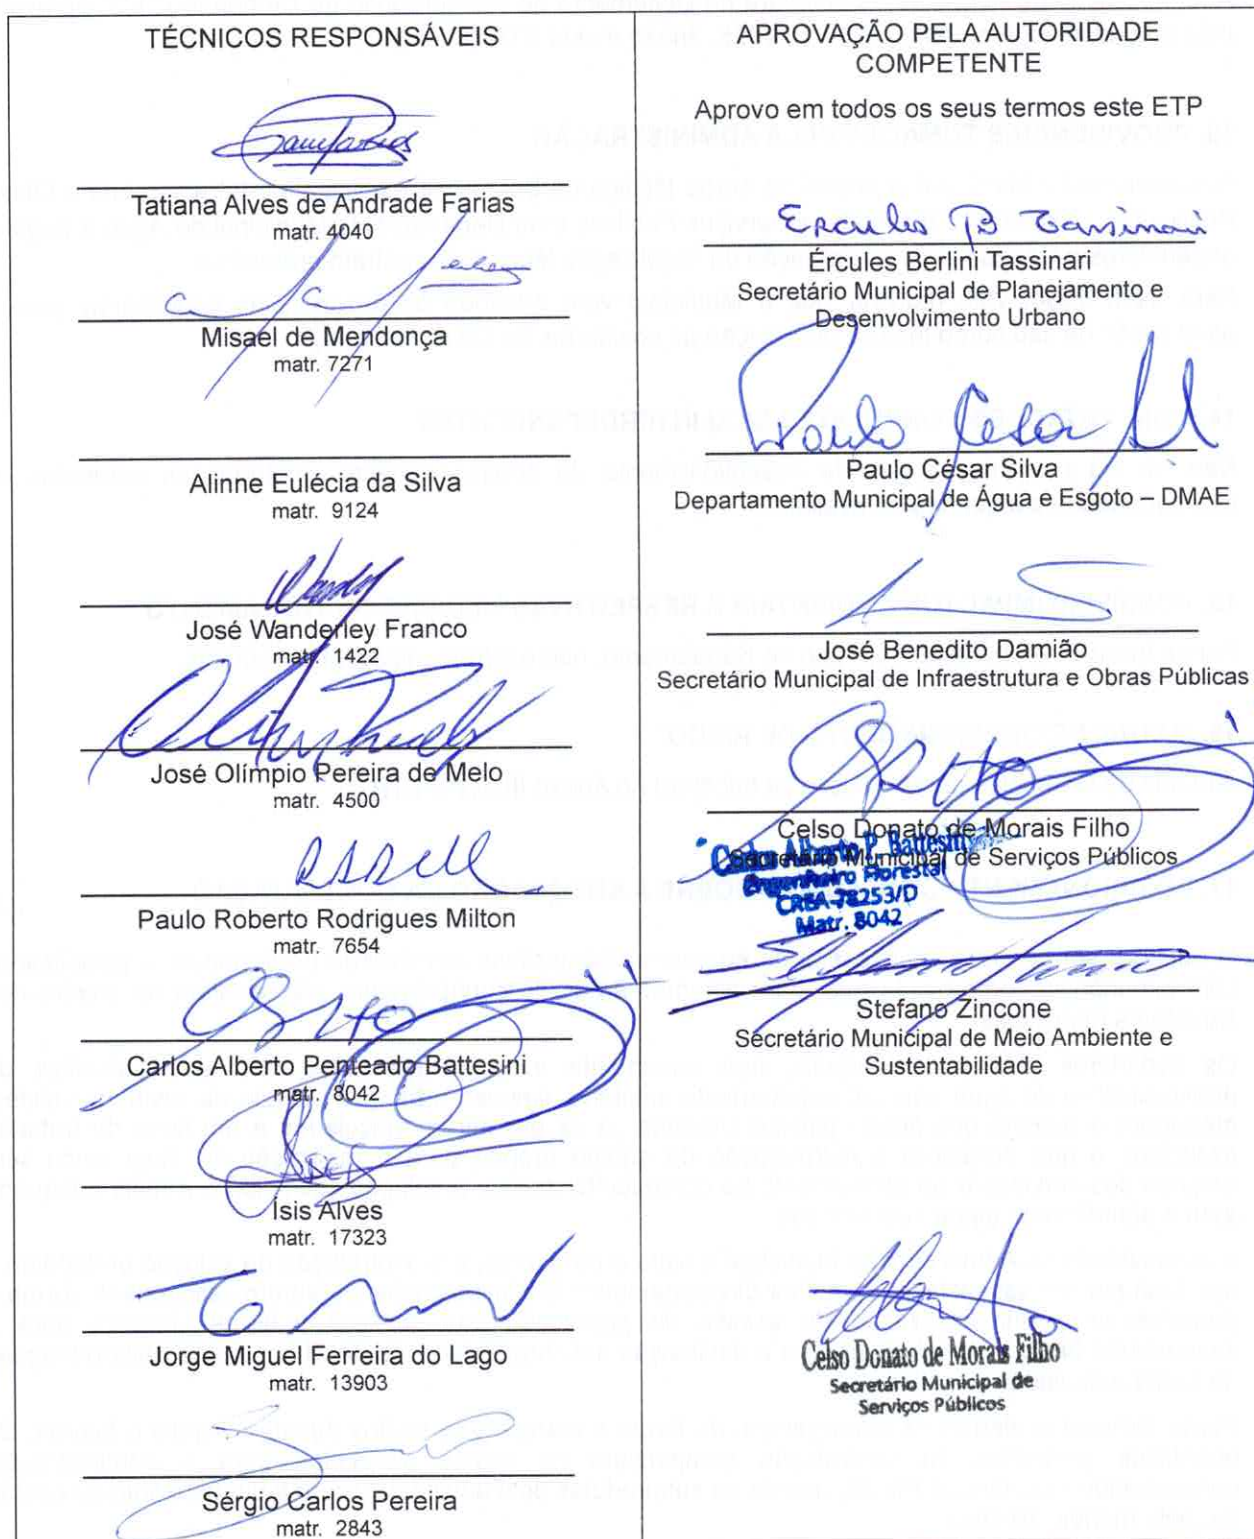 TÉCNICOS RESPONSÁVEIS
Tatiana Alves de Andrade Farias
matr. 4040
Misael de Mendonça
matr. 7271
Alinne Eulécia da Silva
matr. 9124
José Wanderley Franco
matr. 1422
José Olímpio Pereira de Melo
matr. 4500
Paulo Roberto Rodrigues Milton
matr. 7654
Carlos Alberto Penteado Battesini
matr. 8042
Ísis Alves
matr. 17323
Jorge Miguel Ferreira do Lago
matr. 13903
Sérgio Carlos Pereira
matr. 2843
APROVAÇÃO PELA AUTORIDADE
COMPETENTE
Aprovo em todos os seus termos este ETP
Ercules B Tassinari
Ércules Berlini Tassinari
Secretário Municipal de Planejamento e
Desenvolvimento Urbano
Paulo Cesar
Paulo César Silva
Departamento Municipal de Água e Esgoto – DMAE
José Benedito Damião
Secretário Municipal de Infraestrutura e Obras Públicas
Celso Donato de Morais Filho
Secretário Municipal de Serviços Públicos
Carlos Alberto P. Battesini
Engenheiro Florestal
CREA-78253/D
Matr. 8042
Stefano Zincone
Secretário Municipal de Meio Ambiente e
Sustentabilidade
Celso Donato de Morais Filho
Secretário Municipal de
Serviços Públicos